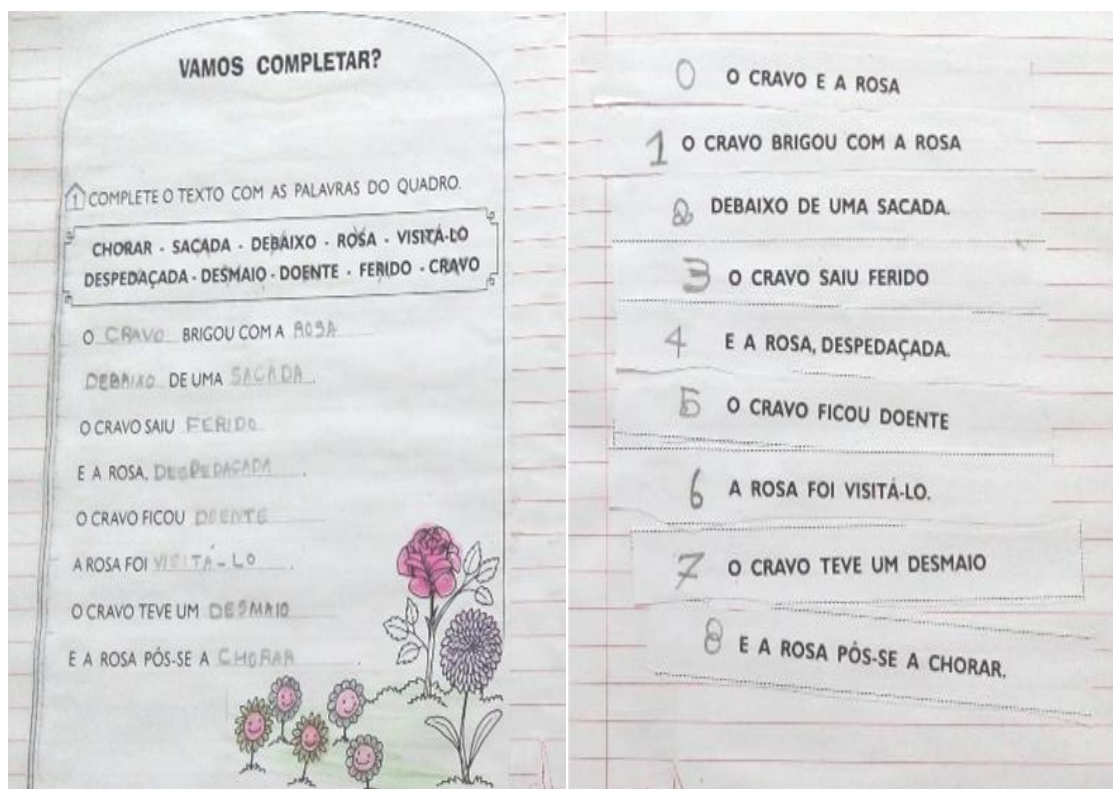 VAMOS COMPLETAR?
1 COMPLETE O TEXTO COM AS PALAVRAS DO QUADRO.
CHORAR - SACADA - DEBAIXO - ROSA - VISITÁ-LO
DESPEDAÇADA - DESMAIO - DOENTE - FERIDO - CRAVO
O CRAVO BRIGOU COM A ROSA
DEBAIXO DE UMA SACADA.
O CRAVO SAIU FERIDO
E A ROSA, DESPEDACADA.
O CRAVO FICOU DOENTE
A ROSA FOI VISITÁ-LO.
O CRAVO TEVE UM DESMAIO
E A ROSA PÔS-SE A CHORAR.
0 O CRAVO E A ROSA
1 O CRAVO BRIGOU COM A ROSA
2 DEBAIXO DE UMA SACADA.
3 O CRAVO SAIU FERIDO
4 E A ROSA, DESPEDAÇADA.
5 O CRAVO FICOU DOENTE
6 A ROSA FOI VISITÁ-LO.
7 O CRAVO TEVE UM DESMAIO
8 E A ROSA PÔS-SE A CHORAR.